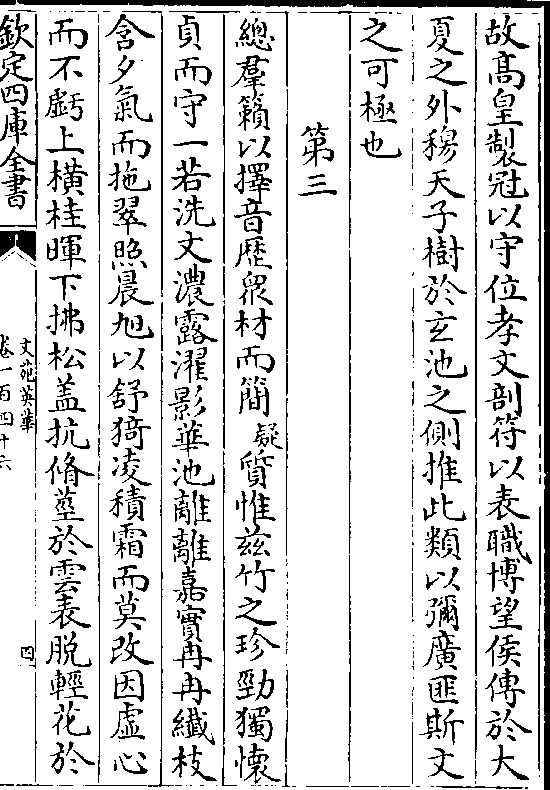 故髙皇製冠以守位孝文剖符以表職博望侯傳於大
夏之外穆天子樹於玄池之側推此類以彌廣匪斯文
之可極也
第三
總羣籟以擇音歴衆材而簡疑質惟兹竹之珍勁獨懐
貞而守一若洗文濃露濯影華池離離嘉實冉冉纖枝
含夕氣而拖翠照晨旭以舒猗凌積霜而莫改因虚心
而不虧上横桂暉下拂松盖抗脩莖於雲表脱輕花於
欽定四庫全書
文苑英華
卷一百四十六
四